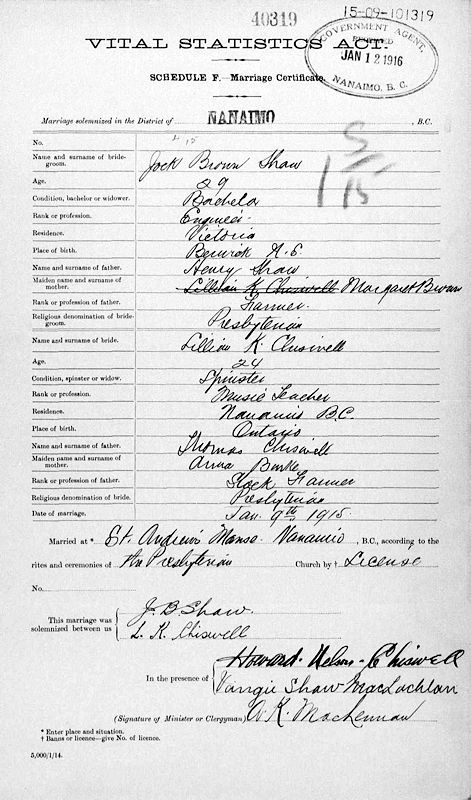 40319
15-09-101319
VITAL STATISTICS ACT.
GOVERNMENT AGENT,
RECEIVED
JAN 12 1916
NANAIMO, B. C.
SCHEDULE F.—Marriage Certificate.
Marriage solemnized in the District of NANAIMO, B.C.
No. 15
5/15
Name and surname of bridegroom. Jock Brown Shaw
Age. 29
Condition, bachelor or widower. Bachelor
Rank or profession. Engineer
Residence. Victoria
Place of birth. Berwick N.S.
Name and surname of father. Henry Shaw
Maiden name and surname of mother. Lillian K. Chiswell Margaret Brown
Rank or profession of father. Farmer.
Religious denomination of bridegroom. Presbyterian
Name and surname of bride. Lillian K. Chiswell
Age. 24
Condition, spinster or widow. Spinster
Rank or profession. Music Teacher
Residence. Nanaimo B.C.
Place of birth. Ontario
Name and surname of father. Thomas Chiswell
Maiden name and surname of mother. Anna Burke
Rank or profession of father. Stock Farmer
Religious denomination of bride. Presbyterian
Date of marriage. Jan. 9th 1915.
Married at * St. Andrew's Manse Nanaimo, B.C., according to the
rites and ceremonies of the Presbyterian Church by † License
No.
This marriage was solemnized between us
J. B. Shaw.
L. K. Chiswell
In the presence of
Howard Nelson Chiswell
Vangie Shaw MacLachlan
(Signature of Minister or Clergyman)
* Enter place and situation.
† Banns or licence—give No. of licence.
5,000/1/14.